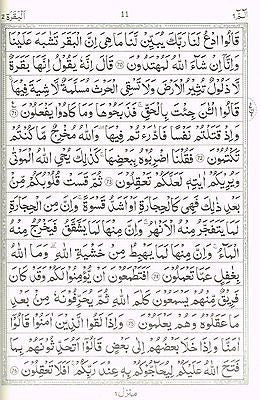 البقرة ٢ 11 الٓمّٓ ١
قَالُوا ادْعُ لَنَا رَبَّكَ يُبَيِّنْ لَّنَا مَا هِيَ اِنَّ الْبَقَرَ تَشٰبَهَ عَلَيْنَا
وَاِنَّآ اِنْ شَآءَ اللّٰهُ لَمُهْتَدُوْنَ ﴿٧٠﴾ قَالَ اِنَّهٗ يَقُوْلُ اِنَّهَا بَقَرَةٌ
لَّا ذَلُوْلٌ تُثِيْرُ الْاَرْضَ وَلَا تَسْقِي الْحَرْثَ مُسَلَّمَةٌ لَّا شِيَةَ فِيْهَا
قَالُوا الْـٰٔنَ جِئْتَ بِالْحَقِّ فَذَبَحُوْهَا وَمَا كَادُوْا يَفْعَلُوْنَ ﴿٧١﴾
وَاِذْ قَتَلْتُمْ نَفْسًا فَادّٰرَءْتُمْ فِيْهَا وَاللّٰهُ مُخْرِجٌ مَّا كُنْتُمْ
تَكْتُمُوْنَ ﴿٧٢﴾ فَقُلْنَا اضْرِبُوْهُ بِبَعْضِهَا كَذٰلِكَ يُحْيِ اللّٰهُ الْمَوْتٰى
وَيُرِيْكُمْ اٰيٰتِهٖ لَعَلَّكُمْ تَعْقِلُوْنَ ﴿٧٣﴾ ثُمَّ قَسَتْ قُلُوْبُكُمْ مِّنْ
بَعْدِ ذٰلِكَ فَهِيَ كَالْحِجَارَةِ اَوْ اَشَدُّ قَسْوَةً وَاِنَّ مِنَ الْحِجَارَةِ
لَمَا يَتَفَجَّرُ مِنْهُ الْاَنْهٰرُ وَاِنَّ مِنْهَا لَمَا يَشَّقَّقُ فَيَخْرُجُ مِنْهُ
الْمَآءُ وَاِنَّ مِنْهَا لَمَا يَهْبِطُ مِنْ خَشْيَةِ اللّٰهِ وَمَا اللّٰهُ
بِغَافِلٍ عَمَّا تَعْمَلُوْنَ ﴿٧٤﴾ اَفَتَطْمَعُوْنَ اَنْ يُّؤْمِنُوْا لَكُمْ وَقَدْ كَانَ
فَرِيْقٌ مِّنْهُمْ يَسْمَعُوْنَ كَلٰمَ اللّٰهِ ثُمَّ يُحَرِّفُوْنَهٗ مِنْ بَعْدِ
مَا عَقَلُوْهُ وَهُمْ يَعْلَمُوْنَ ﴿٧٥﴾ وَاِذَا لَقُوا الَّذِيْنَ اٰمَنُوْا قَالُوْٓا
اٰمَنَّا وَاِذَا خَلَا بَعْضُهُمْ اِلٰى بَعْضٍ قَالُوْٓا اَتُحَدِّثُوْنَهُمْ بِمَا
فَتَحَ اللّٰهُ عَلَيْكُمْ لِيُحَآجُّوْكُمْ بِهٖ عِنْدَ رَبِّكُمْ اَفَلَا تَعْقِلُوْنَ ﴿٧٦﴾
منزل ١